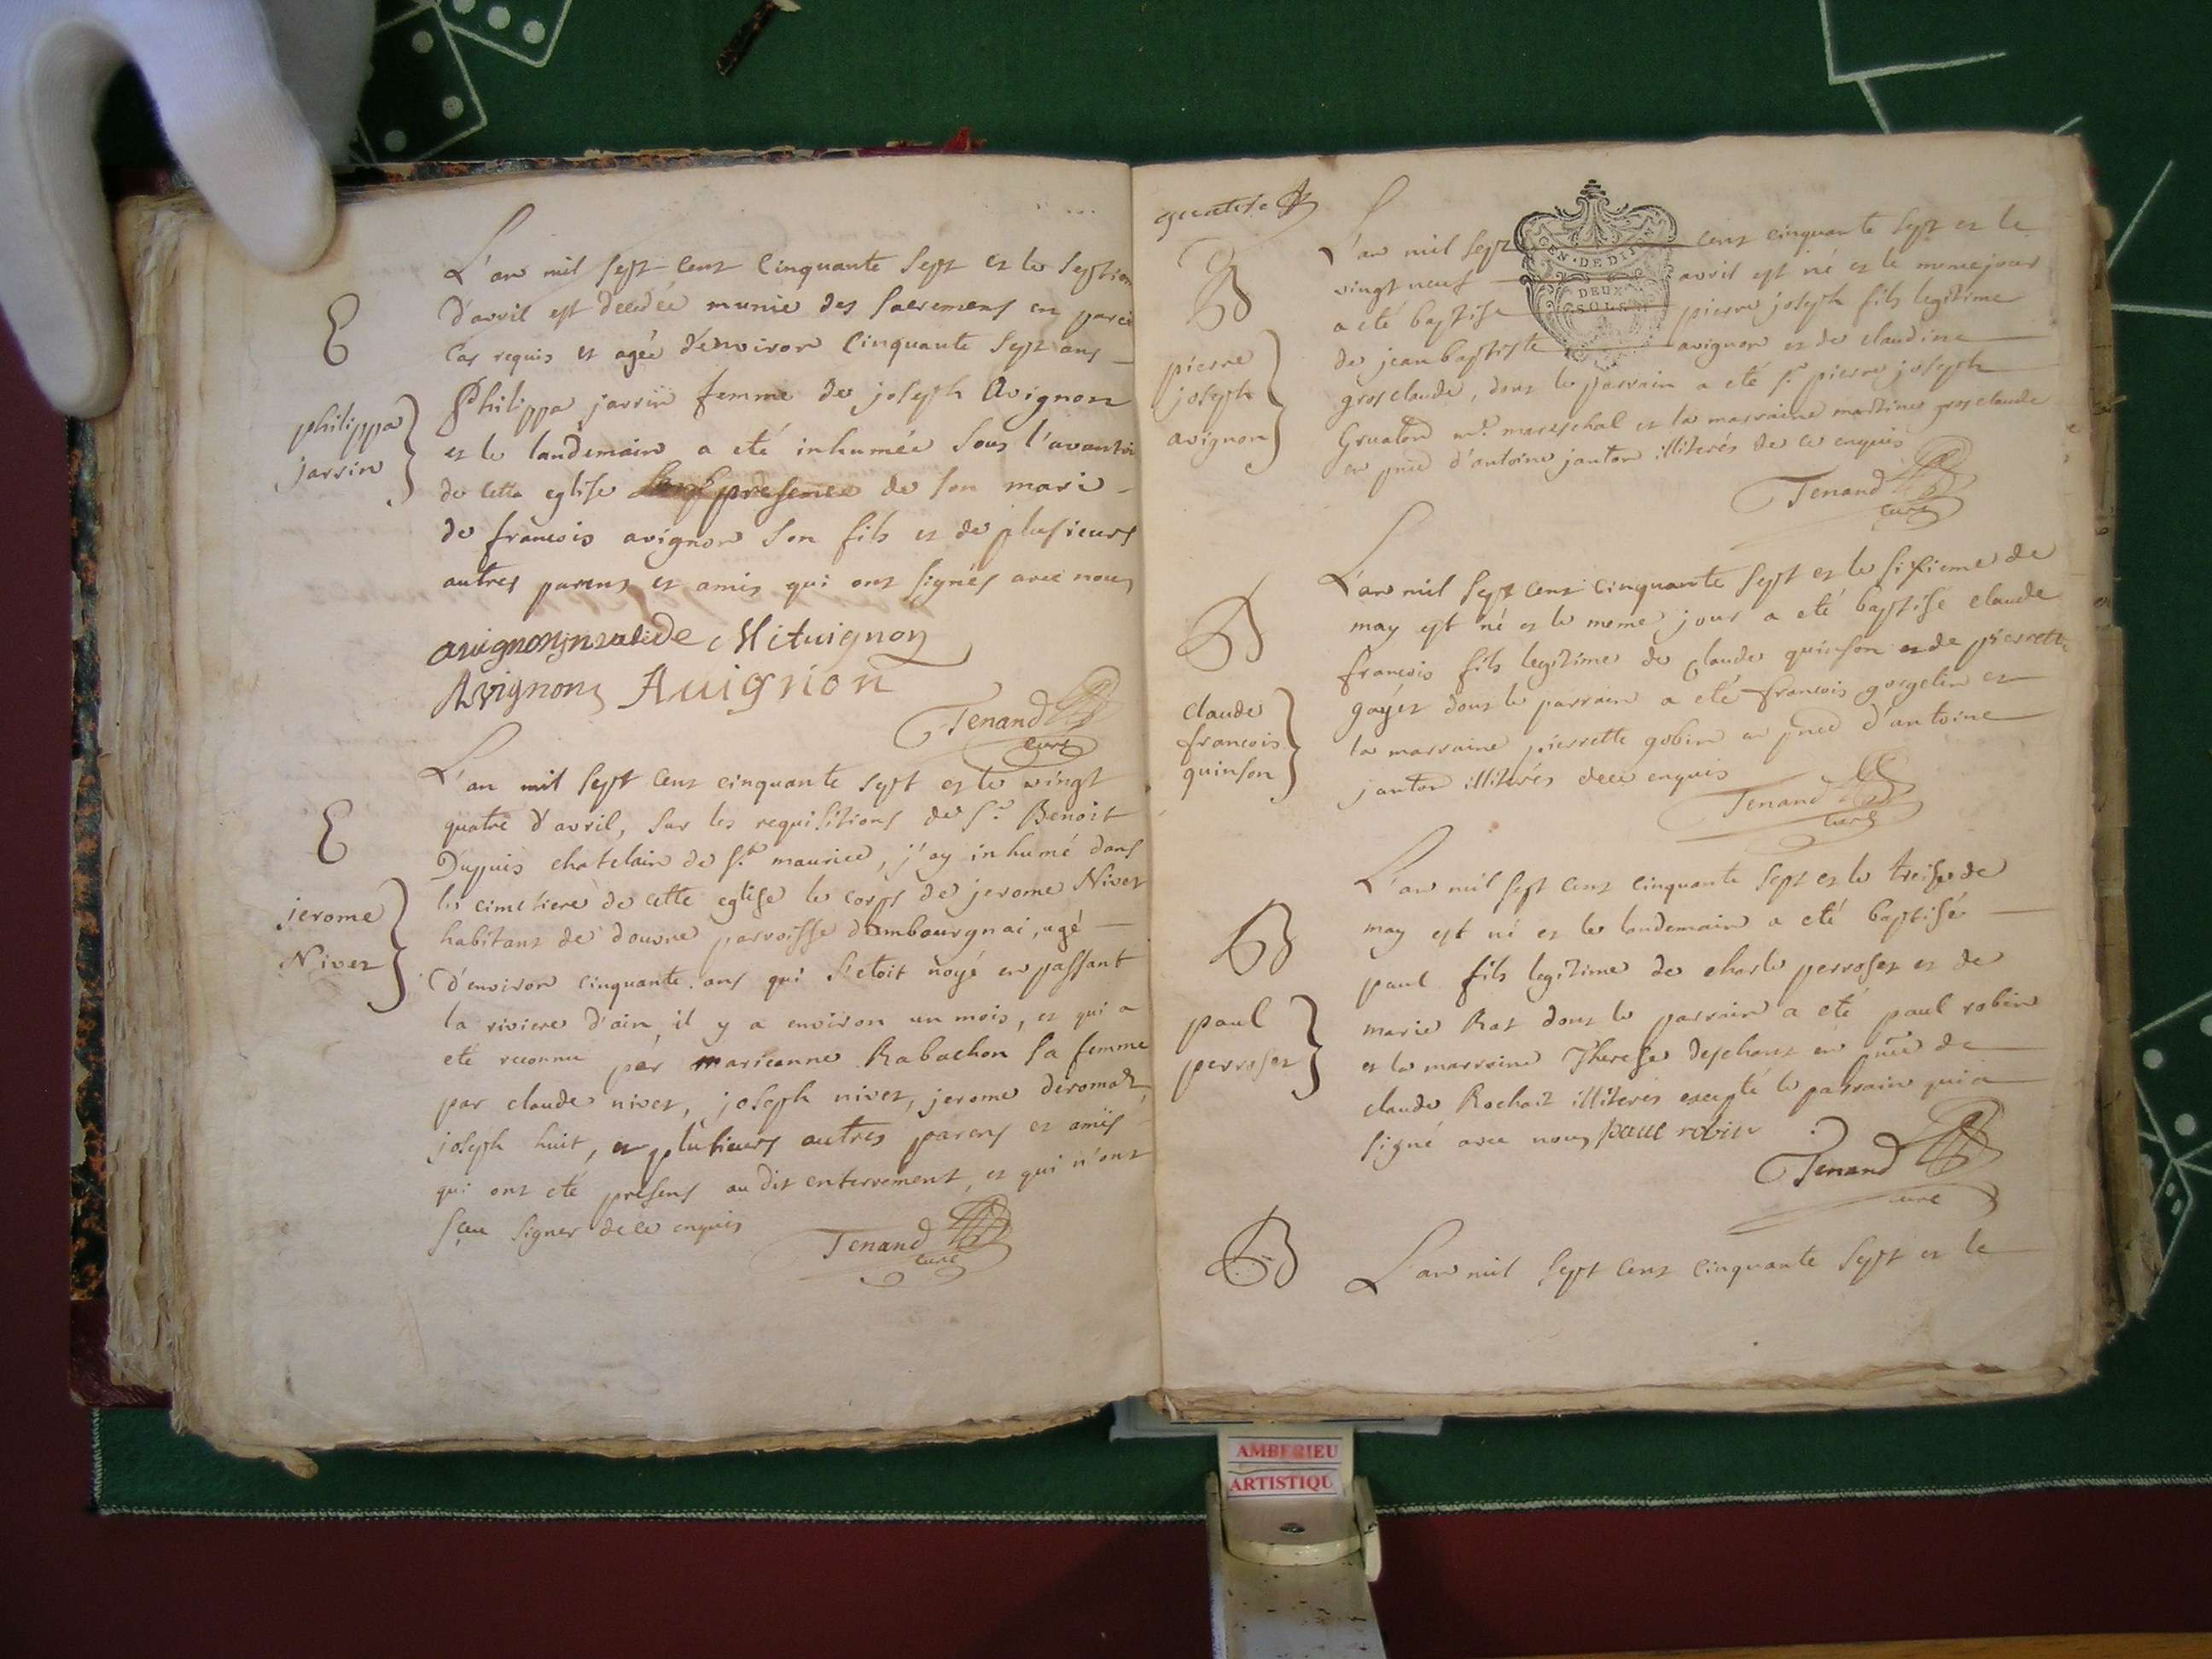 E
philippa
jarrin
L'an mil sept cent cinquante sept et le septiem
d'avril est decedée munie des sacremens en pareil
cas requis et agée d'environ cinquante sept ans
Philippa jarrin femme de joseph Avignon
et le landemain a eté inhumée sous l'avantoi
de cette eglise presence de son mari
de francois avignon son fils et de plusieurs
autres parens et amis qui ont signés avec nous
Avignon Avignon
Tenand
curé
E
jerome
Nivet
L'an mil sept cent cinquante sept et le vingt
quatre d'avril, sur les requisitions de Sr Benoit
Dupuis chatelain de St maurice, j'ay inhumé dans
le cimetiere de cette eglise le corps de jerome Nivet
habitant de douvre parroisse d'ambourgnai, agé
d'environ cinquante ans qui s'etoit noyé en passant
la riviere d'ain, il y a environ un mois, et qui a
eté reconnu par marieanne Rabachon sa femme
par claude nivet, joseph nivet, jerome deromat,
joseph huit, et plusieurs autres parens et amis
qui ont eté presens audit enterrement, et qui n'ont
sçeu signer de ce enquis
Tenand
curé
B
pierre
joseph
avignon
L'an mil sept cent cinquante sept et le
vingt neuf avril est né et le meme jour
a eté baptisé pierre joseph fils legitime
de jean baptiste avignon et de claudine
grosclaude, dont le parrain a eté sr pierre joseph
Gruaton mre mareschal et la marraine martine grosclaude
en pnce d'antoine janton illiterés de ce enquis
GEN. DE DIJON
DEUX
SOLS
Tenand
curé
B
claude
francois
quinson
L'an mil sept cent cinquante sept et le sixieme de
may est né et le meme jour a eté baptisé claude
francois fils legitime de claude quinson et de pierrette
gayet dont le parrain a eté francois gorgelin et
la marraine pierrette gobin en pnce d'antoine
janton illiterés de ce enquis
Tenand
curé
B
paul
perroset
L'an mil sept cent cinquante sept et le treise de
may est né et le landemain a eté baptisé
paul fils legitime de charle perroset et de
marie Rat dont le parrain a eté paul robin
et la marraine Therese deschans en pnce de
claude Rochait illiterés excepté le parrain qui a
signé avec nous paul robin
Tenand
curé
B
L'an mil sept cent cinquante sept et le
AMBERIEU
ARTISTIQU